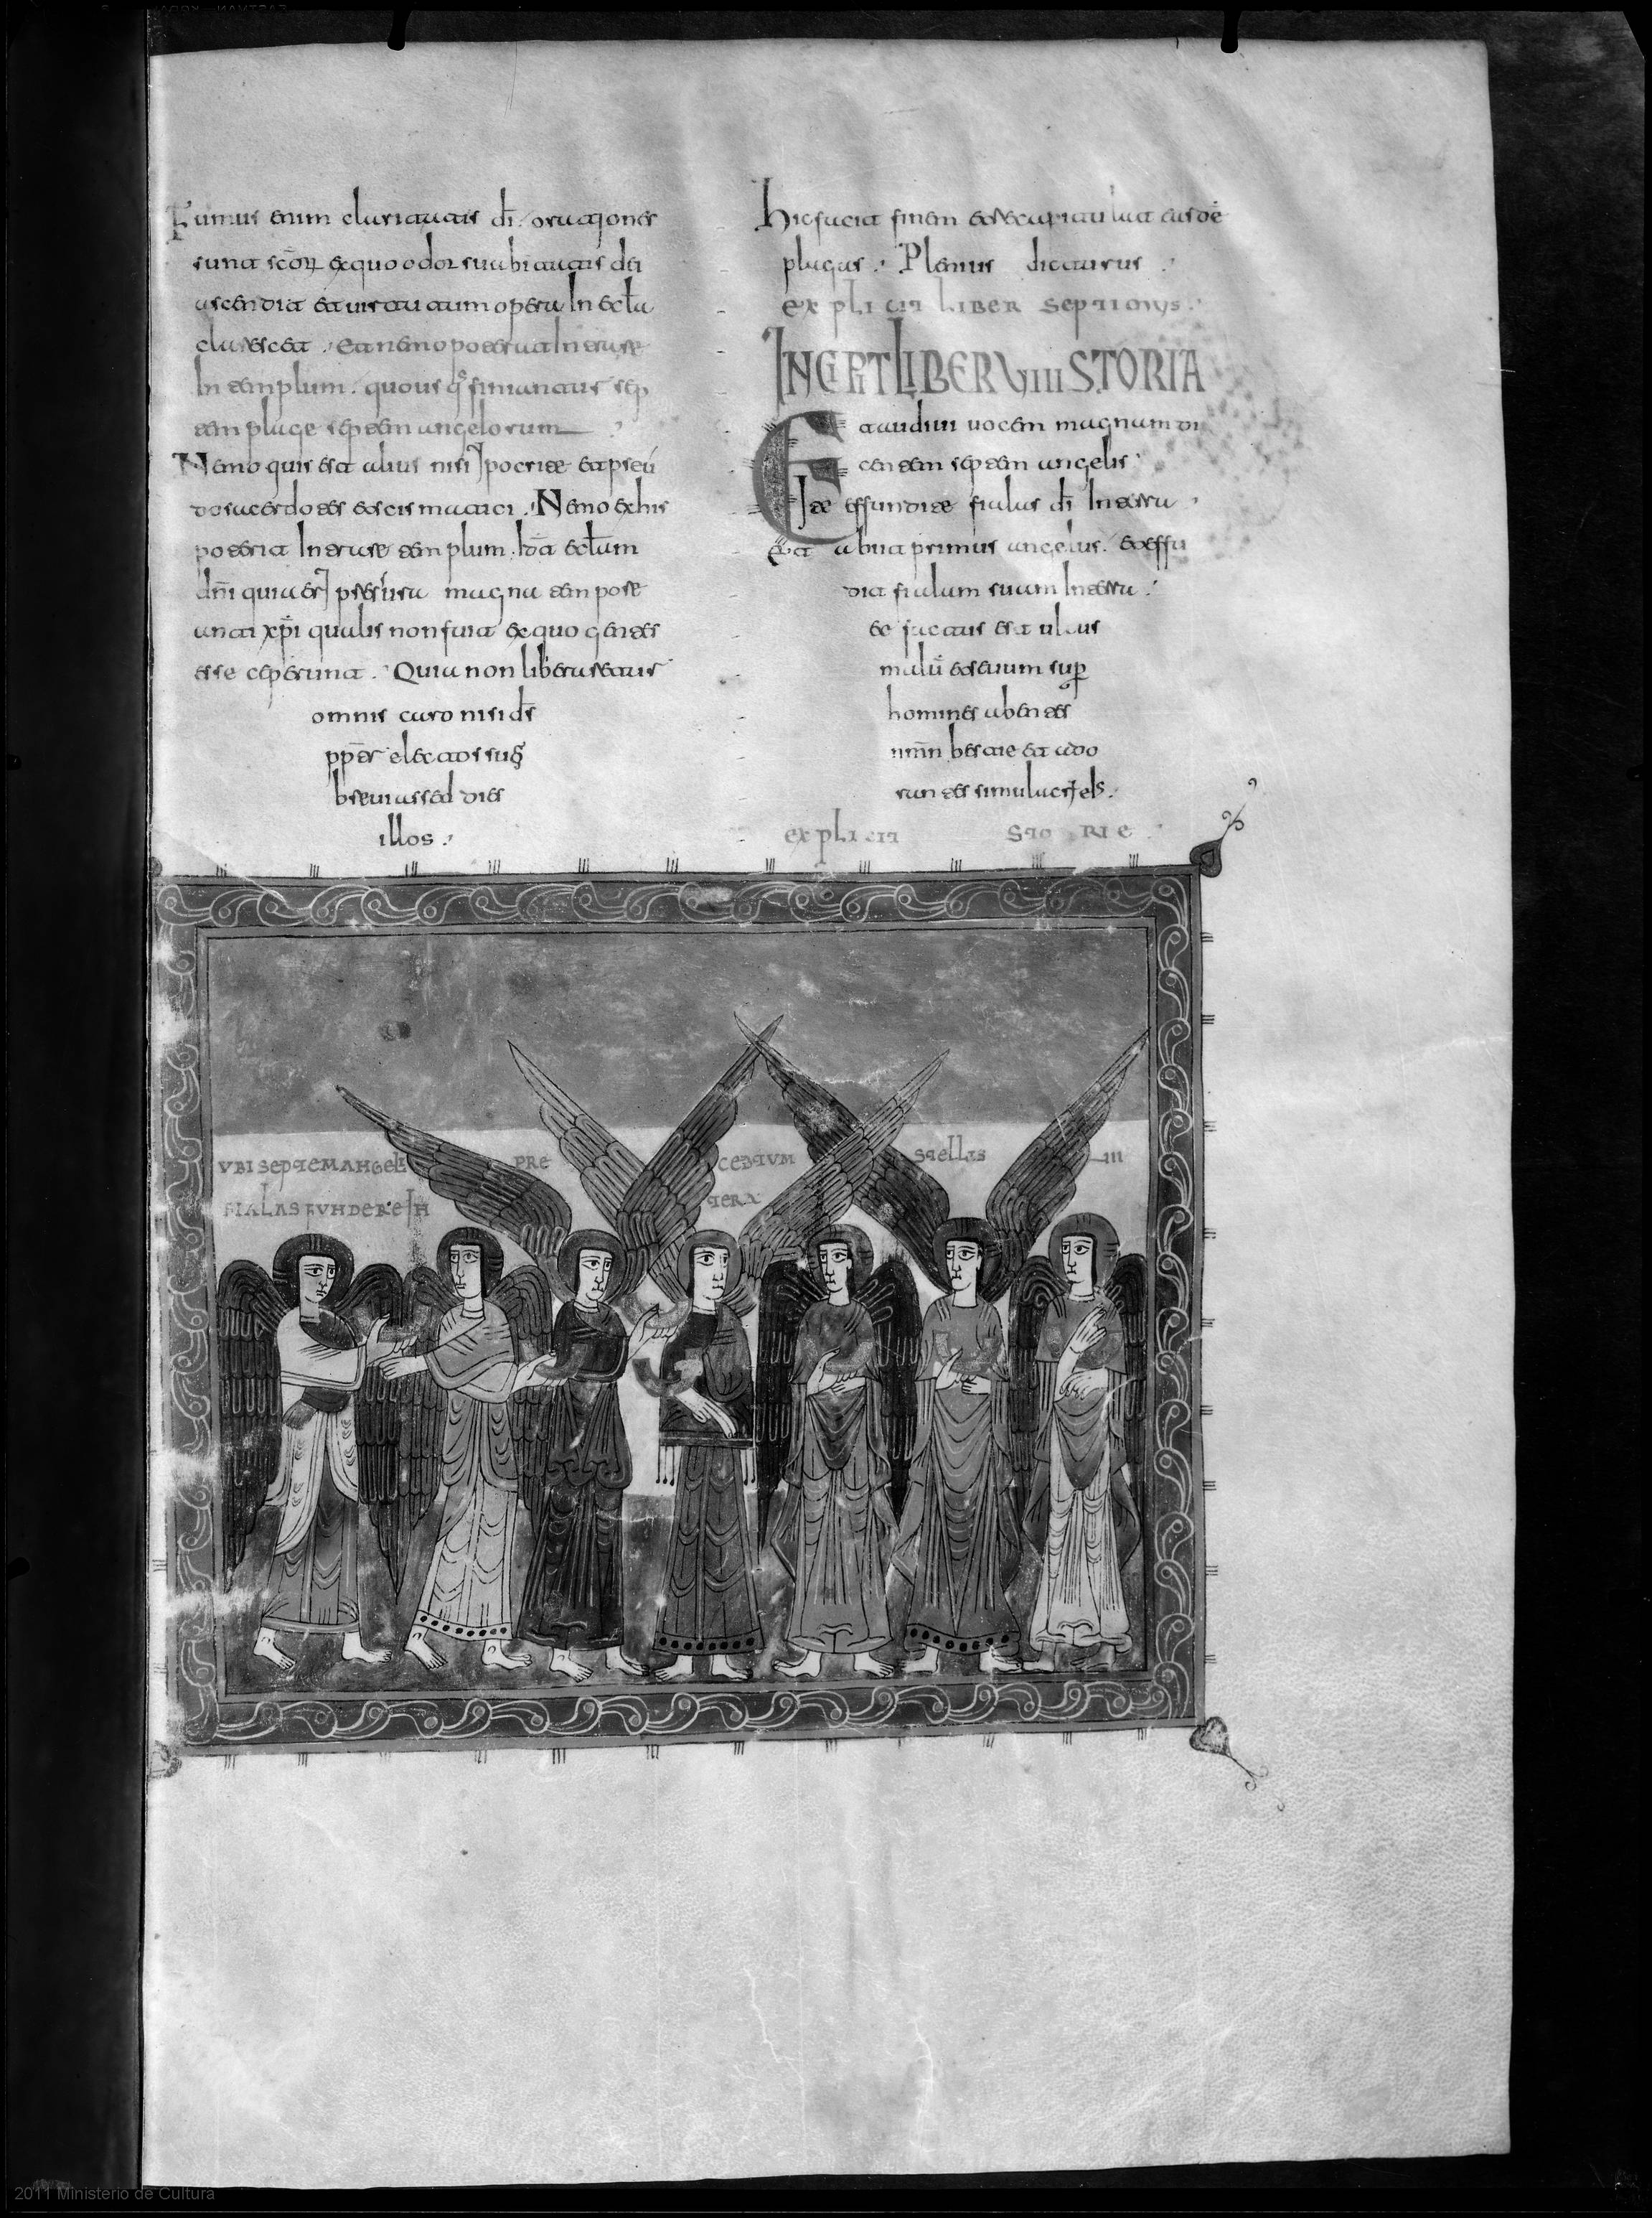 Fumus enim claritatis dī. orationes
sunt scōrum ex quo odor suabitatis dei
ascendit et uirtutum opera In ecl̄a
clarescat. et nemo poterat Intrare
In templum. quousq; finiantur sep
tem plage septem angelorum
Nemo quis est alius nisi Ipocrite et pseu
dosacerdotes et scismatici. Nemo ex his
poterit Intrare templum. Id̄ est ecl̄am
dn̄i quia erit pressura magna tempore
anti xp̄i qualis non fuit ex quo gentes
esse ceperunt. Quia non liberasetur
omnis caro nisi d̄s
pp̄ter electos suos
breuiassed dies
illos.
hic facit finem et recapitulat easdē
plagas. Plenius dicturus.
explicit LIBER septimus.
INCIPIT LIBER VIII STORIA
Et audiui uocem magnam di
centem septem angelis
Ite effundite fialas dī In terra
Et abiit primus angelus. et effu
dit fialam suam In terra.
et factus est ulcus
malū et seuum sup̄
homines abentes
nm̄n bestie et ado
rantes simulacri eIs.
explicit STORIE
VBI SEPTEM ANGELI PRE CEDTVM STELLIS III
FIALAS FVNDERE IN TERA
2011 Ministerio de Cultura